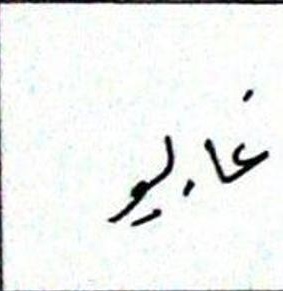 غابيو